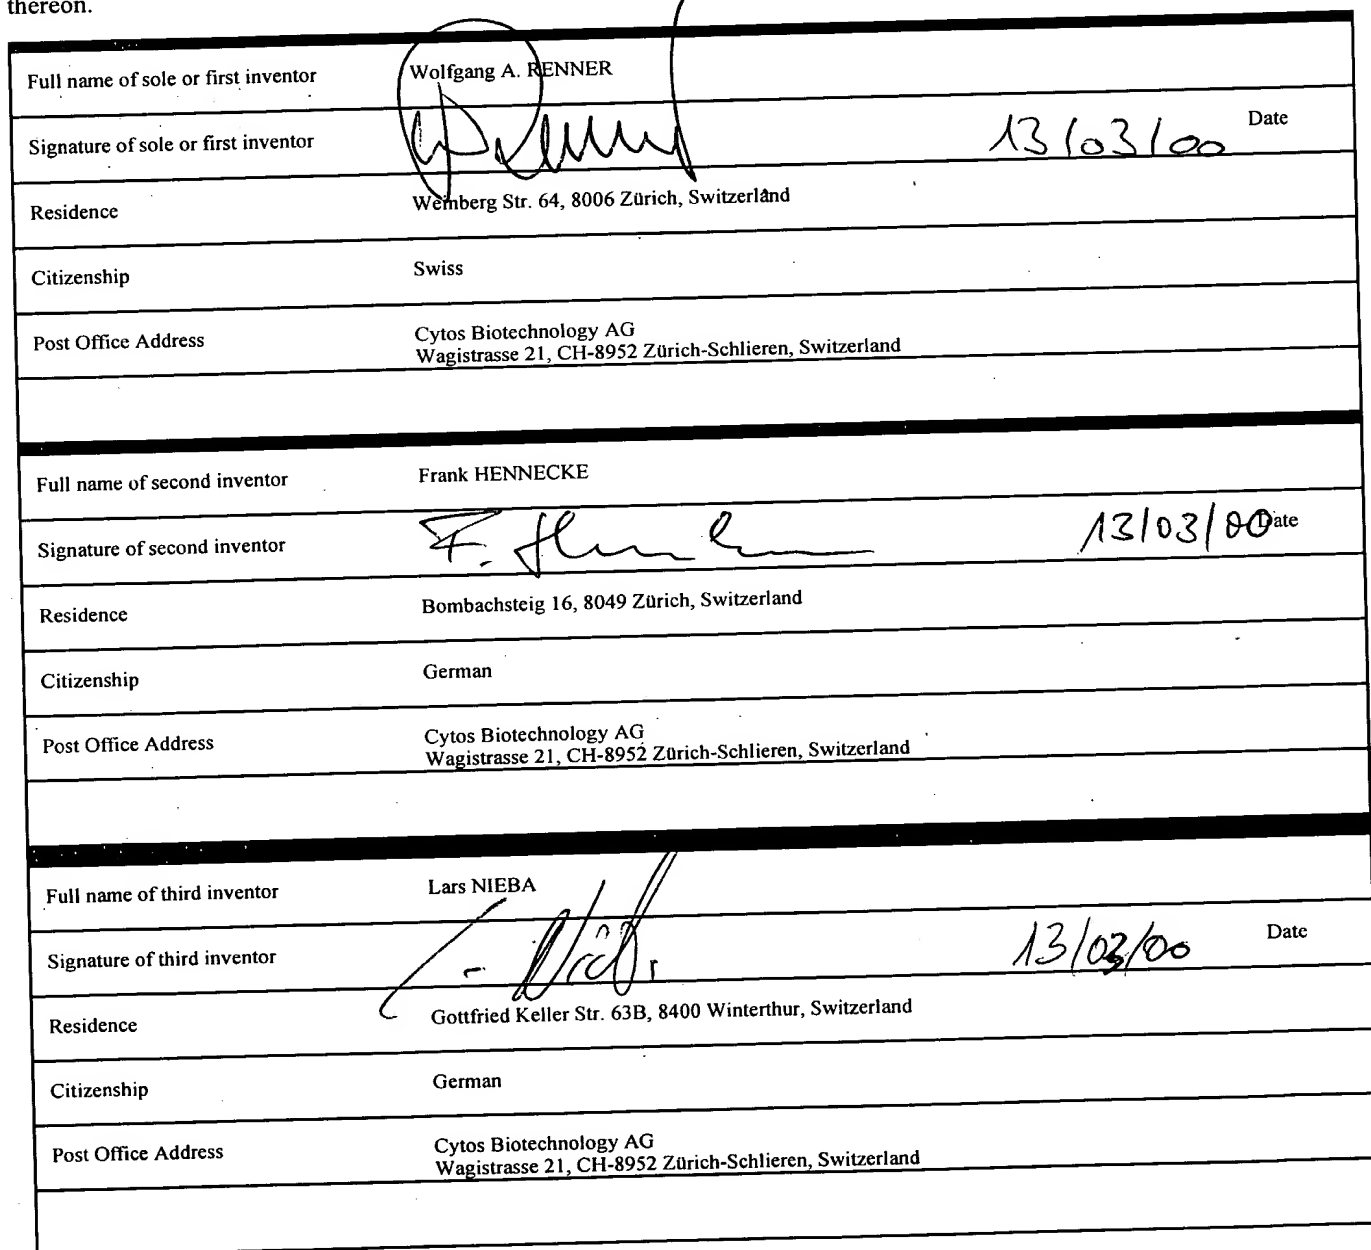 thereon.
Full name of sole or first inventor Wolfgang A. RENNER
Signature of sole or first inventor 13/03/00 Date
Residence Weinberg Str. 64, 8006 Zürich, Switzerland
Citizenship Swiss
Post Office Address Cytos Biotechnology AG
Wagistrasse 21, CH-8952 Zürich-Schlieren, Switzerland
Full name of second inventor Frank HENNECKE
Signature of second inventor F. Hennecke 13/03/00 Date
Residence Bombachsteig 16, 8049 Zürich, Switzerland
Citizenship German
Post Office Address Cytos Biotechnology AG
Wagistrasse 21, CH-8952 Zürich-Schlieren, Switzerland
Full name of third inventor Lars NIEBA
Signature of third inventor 13/03/00 Date
Residence Gottfried Keller Str. 63B, 8400 Winterthur, Switzerland
Citizenship German
Post Office Address Cytos Biotechnology AG
Wagistrasse 21, CH-8952 Zürich-Schlieren, Switzerland